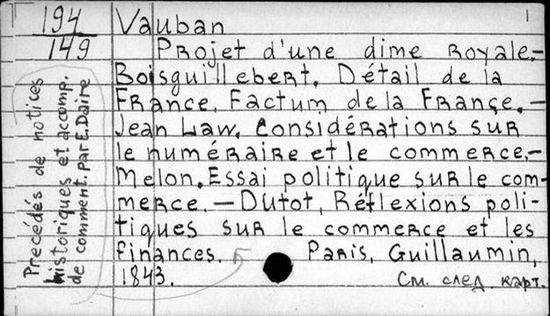 194
149
Vauban
Projet d'une dime Royale.—
Boisguillebert, Détail de la
France, Factum de la France.—
Jean Law, Considérations sur
le numéraire et le commerce.—
Melon, Essai politique sur le com-
merce.—Dutot, Réflexions poli-
tiques sur le commerce et les
finances. Paris, Guillaumin,
1843.
См. след. карт.
Précédés de notices
historiques et accomp.
de comment. par E. Daire